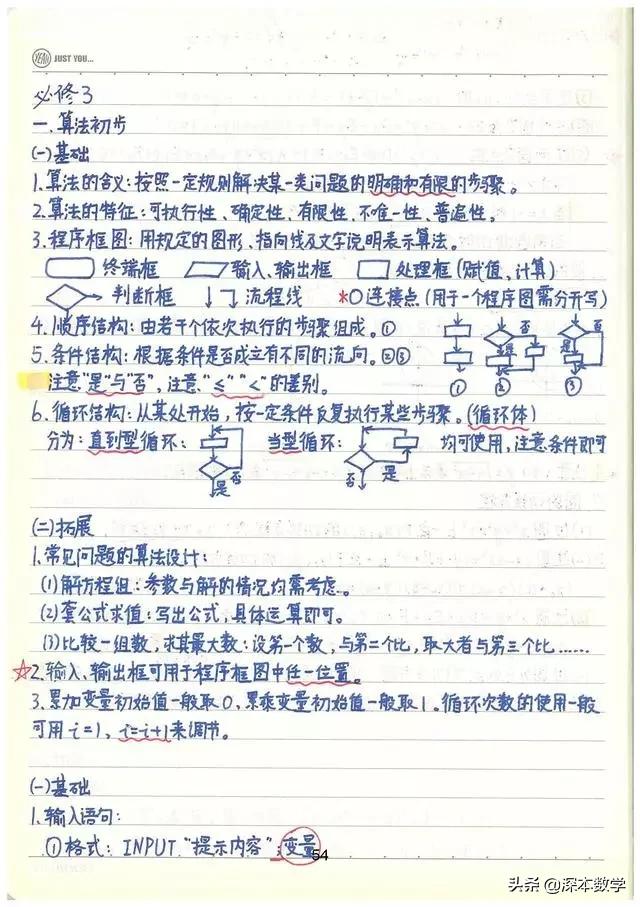 YEAH JUST YOU...
必修3
一.算法初步
(一)基础
1.算法的含义:按照一定规则解决某一类问题的明确和有限的步骤。
2.算法的特征:可执行性、确定性、有限性、不唯一性、普遍性。
3.程序框图:用规定的图形、指向线及文字说明表示算法。
终端框 输入、输出框 处理框(赋值、计算)
判断框 流程线 *○连接点(用于一个程序图需分开写)
4.顺序结构:由若干个依次执行的步骤组成。①
5.条件结构:根据条件是否成立有不同的流向。②③
注意"是"与"否",注意"≤""<"的差别。
是 否 是 否
① ② ③
6.循环结构:从某处开始,按一定条件反复执行某些步骤。(循环体)
分为:直到型循环: 当型循环: 均可使用,注意条件即可
否 是 否 是
(二)拓展
1.常见问题的算法设计:
(1)解方程组:参数与解的情况均需考虑。
(2)套公式求值:写出公式,具体运算即可。
(3)比较一组数,求其最大数:设第一个数,与第二个比,取大者与第三个比……
☆2.输入、输出框可用于程序框图中任一位置。
3.累加变量初始值一般取0,累乘变量初始值一般取1。循环次数的使用一般
可用i=1,i=i+1来调节。
(一)基础
1.输入语句:
①格式: INPUT "提示内容";变量
54
头条@深本数学